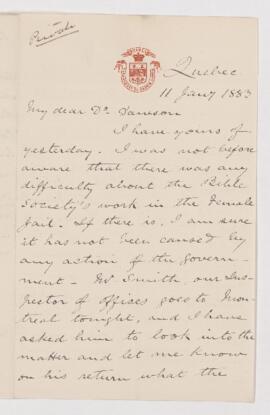 Private
Quebec
11 Jany 1883
My dear Dr. Dawson
I have yours of
yesterday. I was not before
aware that there was any
difficulty about the Bible
Society's work in the Female
Jail. If there is, I am sure
it has not been caused by
any action of the Govern-
ment - Mr Smith, our Ins-
pector of offices goes to Mon-
treal tonight, and I have
asked him to look into the
matter and let me know
on his return what the